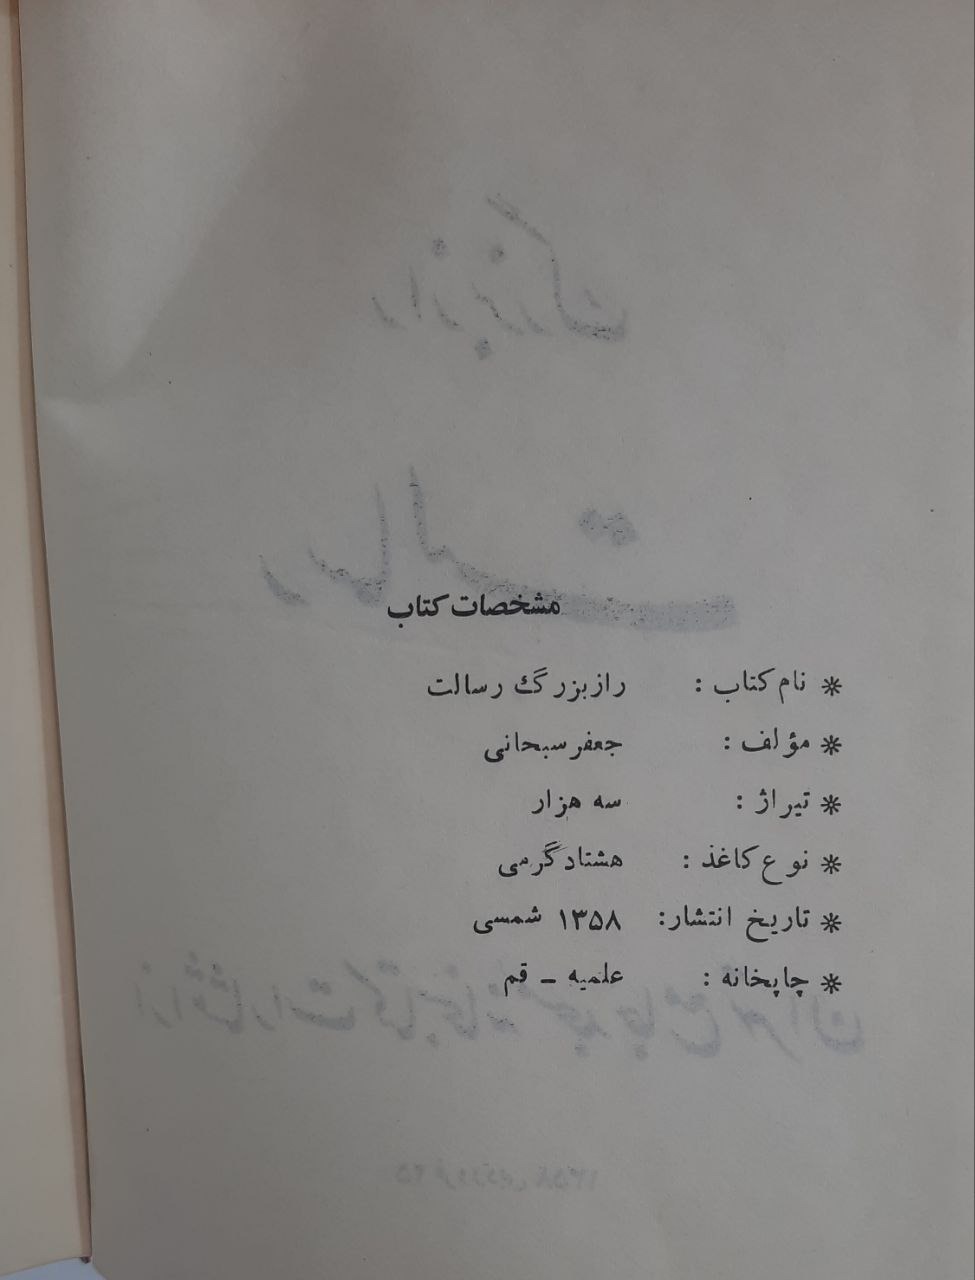 مشخصات کتاب
* نام کتاب : راز بزرگ رسالت
* مؤلف : جعفر سبحانی
* تیراژ : سه هزار
* نوع کاغذ : هشتاد گرمی
* تاریخ انتشار: ۱۳۵۸ شمسی
* چاپخانه : علمیه ـ قم